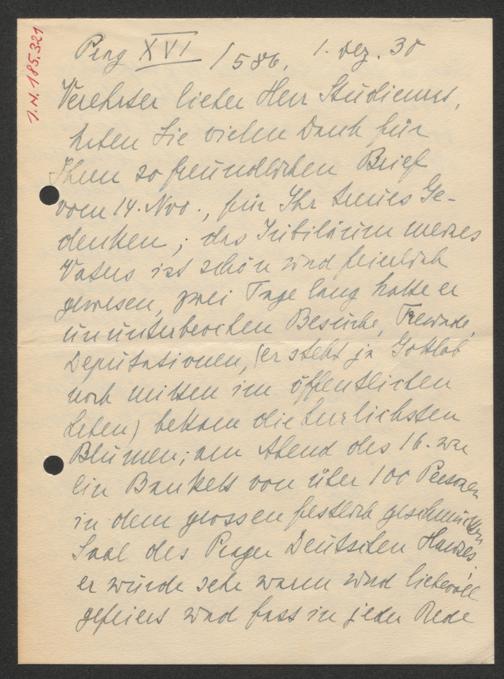 I.N. 185.321
Prag XVI / 586, 1. Dez. 30
Verehrter lieber Herr Studienrat,
haben Sie vielen Dank für
Ihren so freundlichen Brief
vom 14. Nov., für Ihr treues Ge-
denken; das Jubiläum meines
Vaters ist schön und feierlich
gewesen, zwei Tage lang hatte er
ununterbrochen Besuche, Freunde,
Deputationen, (er steht ja Gottlob
noch mitten im öffentlichen
Leben) bekam die herrlichsten
Blumen; am Abend des 16. war
ein Bankett von über 100 Personen
in dem grossen festlich geschmückten
Saal des Prager Deutschen Hauses.
er wurde sehr warm und liebevoll
gefeiert und fast in jeder Rede